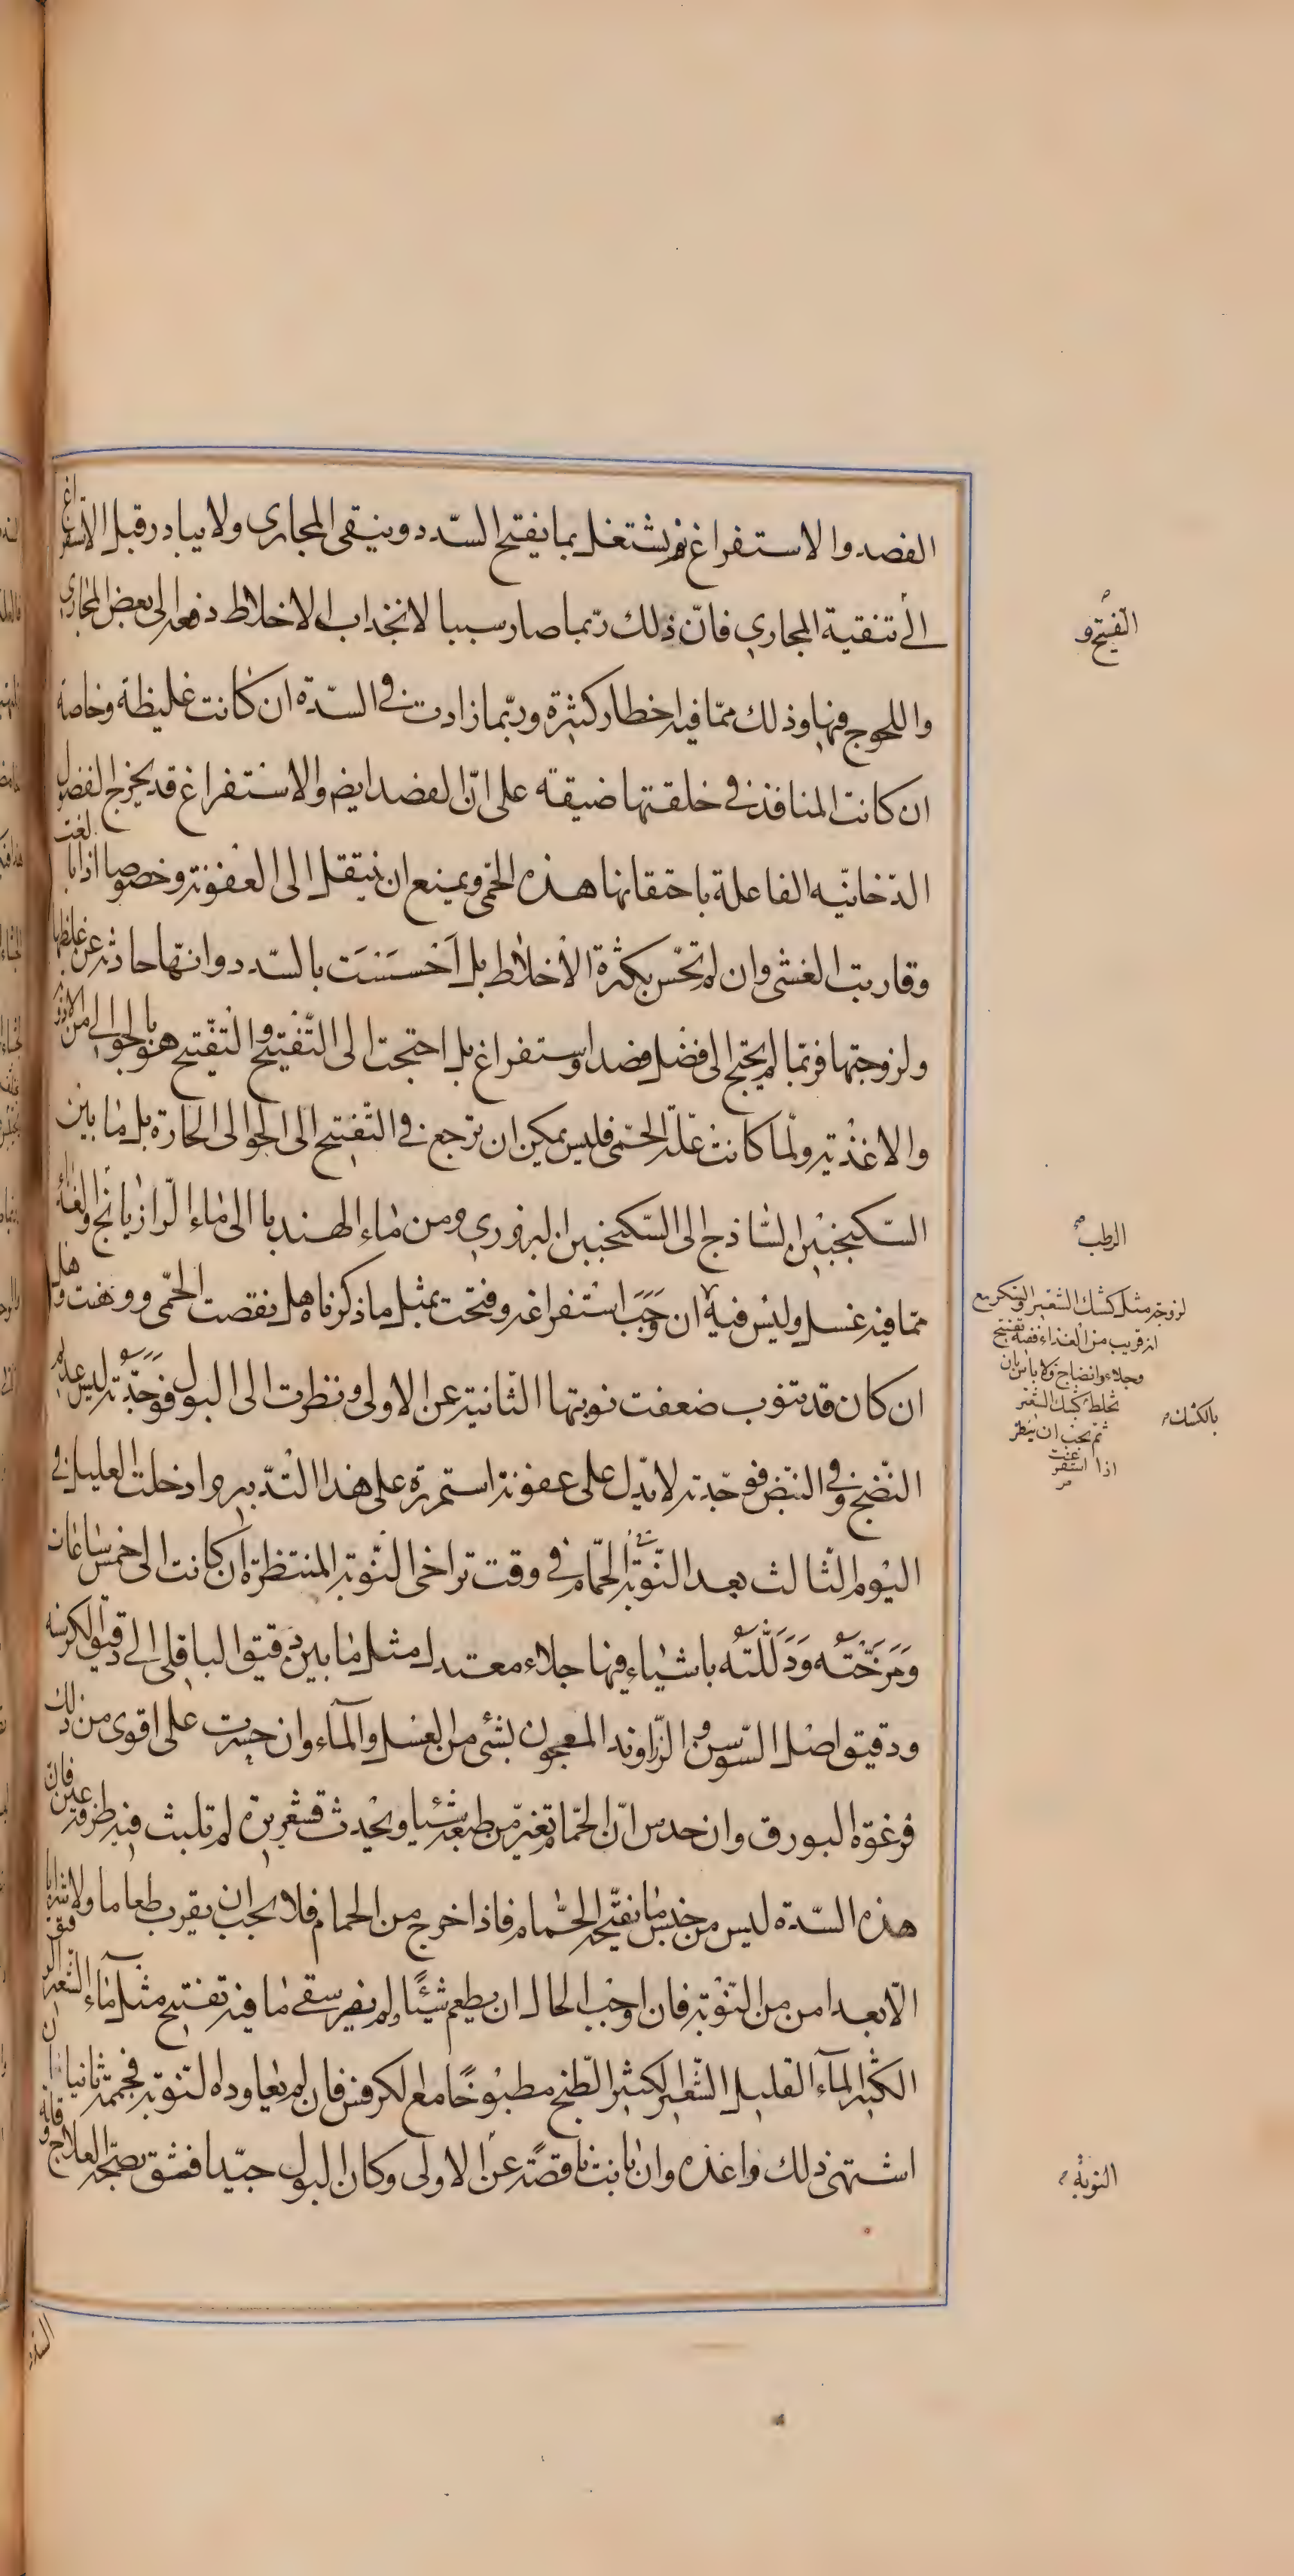 الفصد والاستفراغ ثم يشتغل بما يفتح السّدد وينقى المجارى ولا يبادر قبل الاستفراغ
الى تنقية المجاري فانّ ذلك ربّما صار سببا لانجذاب الاخلاط دفعه الى بعض المجارى
واللحوج فيها وذلك ممّا فيه اخطار كثيرة وربّما زادت في السدّة ان كانت غليظة وخاصة
ان كانت المنافذ في خلقتها ضيقة على انّ الفصد ايضم والاستفراغ قد يخرج الفضول
الدّخانيّه الفاعلة باحتقانها هذه الحمّى ويمنع ان ينتقل الى العفونة وخصوصا اذا بالغت
وقاربت الغشى وان لم تحّس بكثرة الاخلاط بل اَحْسَسْتَ بالسّدد وانّها حادثة عن غلظها
ولزوجتها فربّما لم يحتج الى فضل فصد واستفراغ بل احتجت الى التّفتيح والتّفتيح هو بالجوالى من الادوية
والاغذية ولّما كانت علّة الحمّى فليس يمكن ان ترجع في التّفتيح الى الجوالى الحارة بل ما بين
السّكنجبين السّاذج الى السّكنجبين البزوري ومن ماء الهندبا الى ماء الرّازيانج والغذاء
ممّا فيه غسل وليس فيه ان وَجَبَ استفراغه وفتحت بمثل ما ذكرناه هل نقصت الحمّى ووهنت وهل
ان كان قد تنوب ضعفت نوبتها الثّانية عن الاولى ونظرت الى البول فوَجَدْته ليس عديم
النّضج وفى النّبض فوجدته لا يدّل على عفونة استمرة على هذا التّدبير وادخلت العليل في
اليوم الثّالث بعد النّوبة الحمّام في وقت تراخى النّوبة المنتظرة ان كانت الى خمس ساعات
وَمَرَخْتَه وَدَلَّكْتَه باشياء فيها جلاء معتدل مثل ما بين دقيق الباقلى الى دقيق الكرسنه
ودقيق اصل السّوسن والزّراوند المعجون بشئ من العسل والمآء وان جسرت على اقوى من ذلك
فرغوة البورق وان حدس انّ الحمّام تغيّر من طبعه شيئا ويحدث قشعريرة لم تلبث فيه طرفة عين فان
هذه السّدة ليس من جنس ما يفتّحه الحمّام فاذا خرج من الحمام فلا يجب ان يقرب طعاما ولا شرابا
الّا بعد امن من النّوبة فان اوجب الحال ان يطعم شيئًا ولم يصبر سقى ما فيه تفتيح مثل ماء الشعير
الكثير المآء القليل الشّعير الكثير الطّبخ مطبوخًا مع الكرفس فان لم يعاوده النّوبة فحممه ثانيا ان
اشتهى ذلك واغذه وان نابت ناقصًة عن الاولى وكان البول جيّدا فشق بصّحة العلاج فانه
الفتح و
الرطب
لزوجة مثل كشك الشعير والسكر مع
انه قريب من الغذاء ففيه تفتيح
وجلاء وانضاج ولا باس بان
تخلط كشك الشعير
بالكشك
ثم يجب ان ينظر
اذا استفرغت
النوبة
السدة